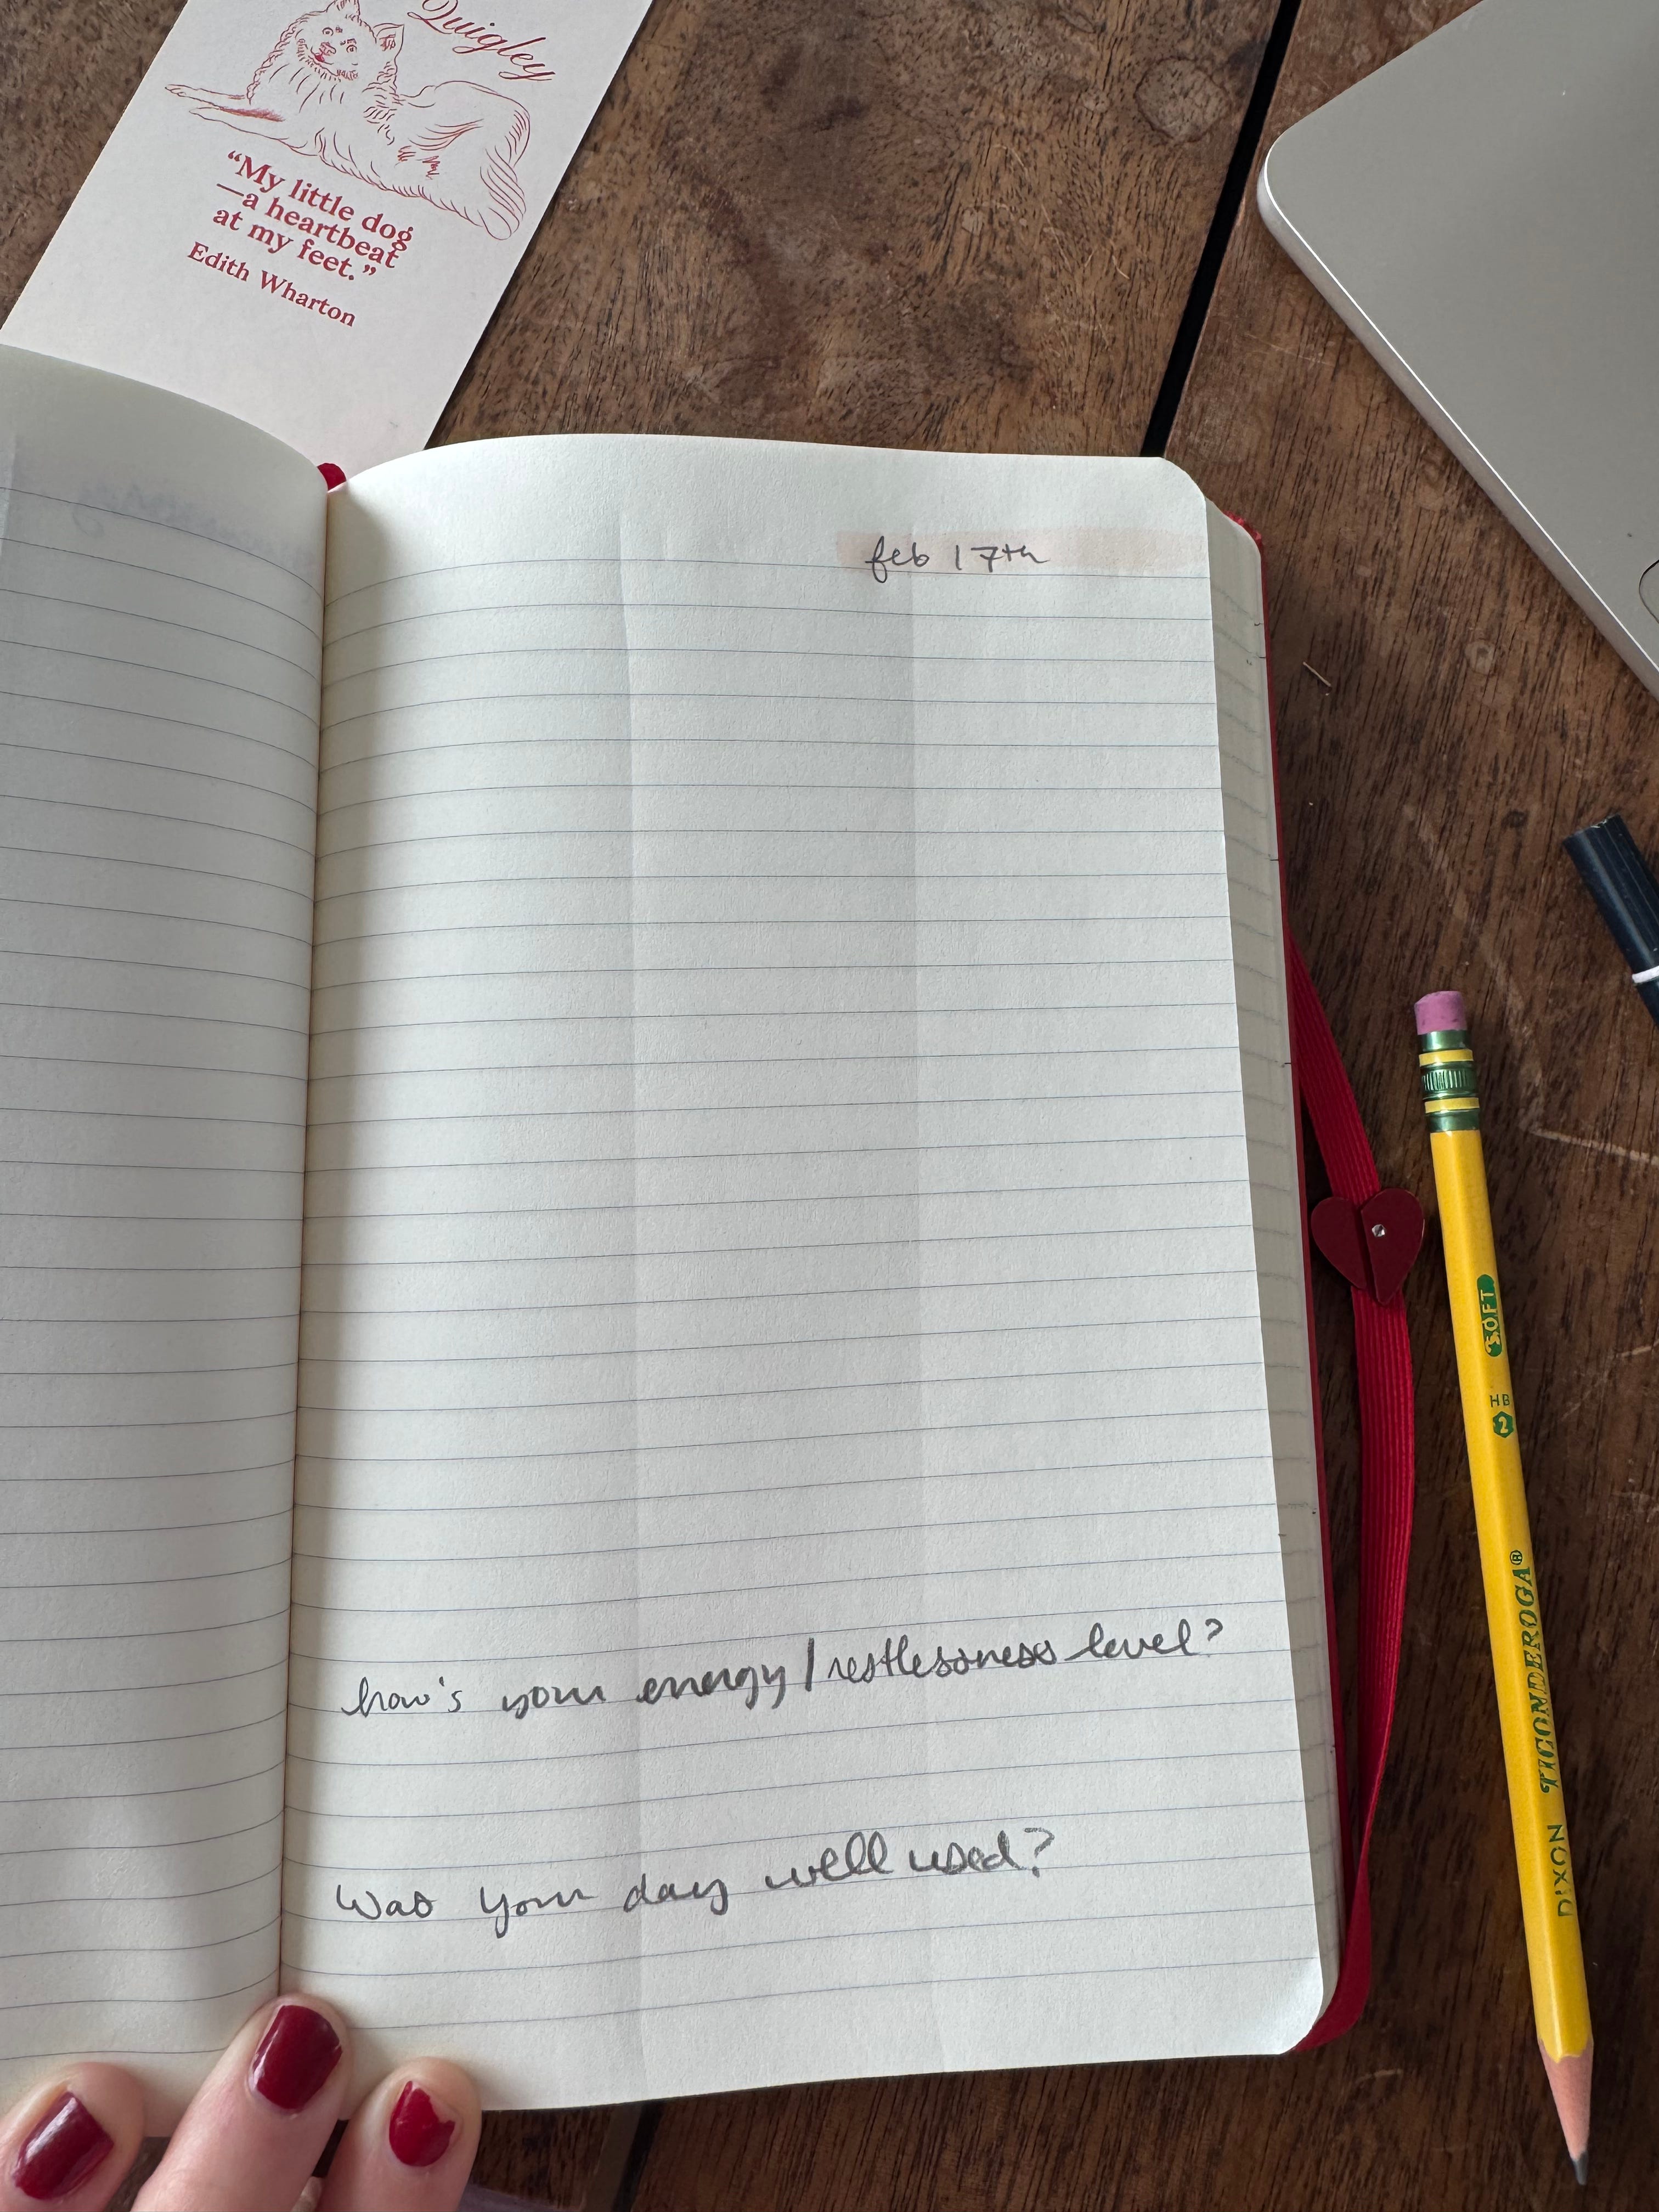 Quigley
“My little dog
—a heartbeat
at my feet.”
Edith Wharton
feb 17th
how's your energy/restlessness level?
Was your day well used?
SOFT
HB
2
DIXON TICONDEROGA®